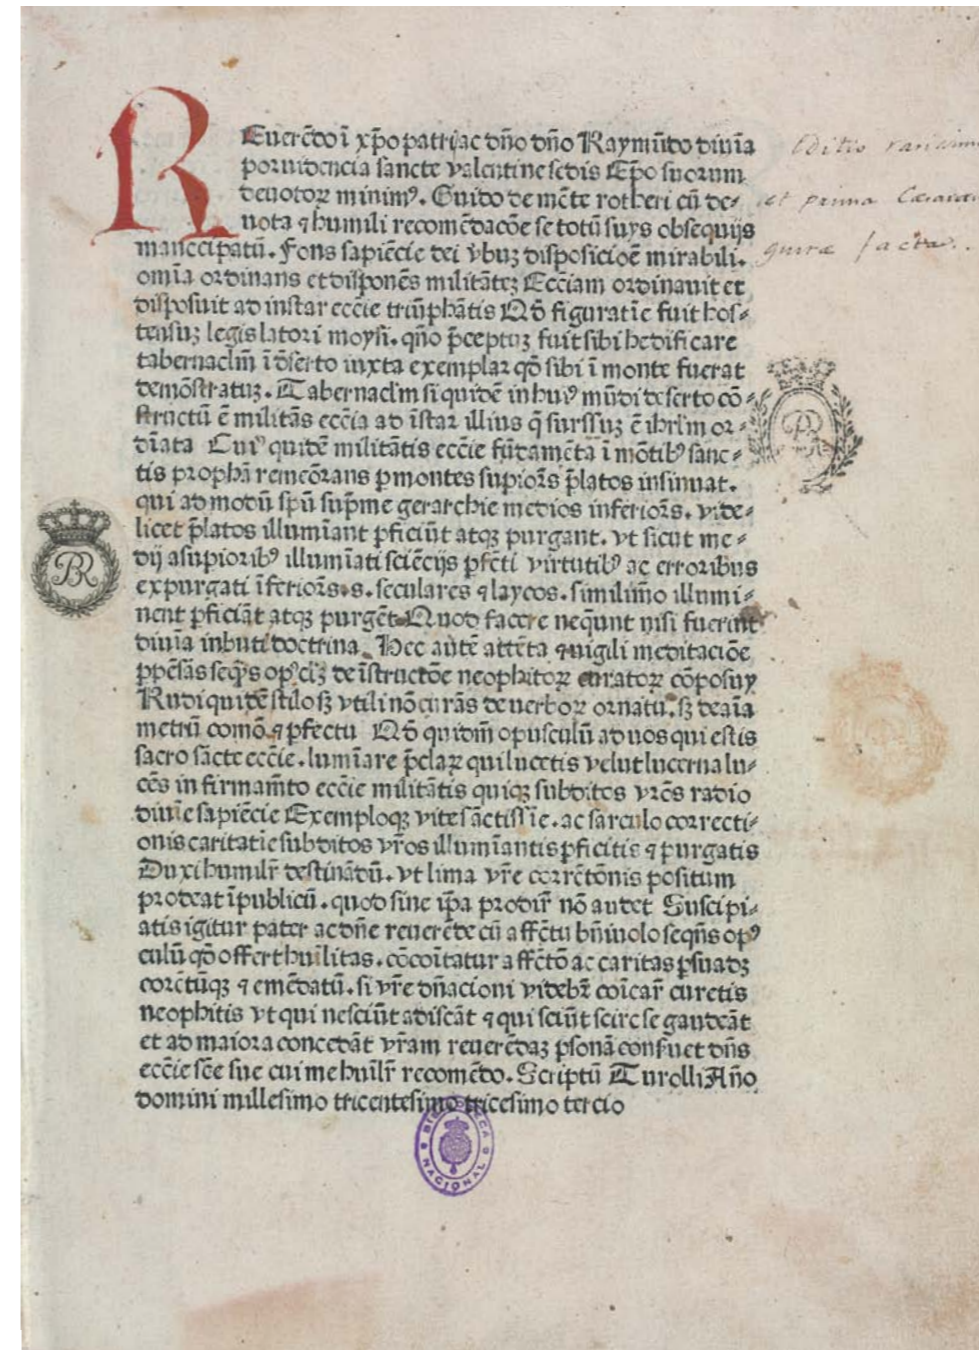 REuerēdo ī xp̄o patri ac dn̄o dn̄o Raymūdo diuīa
poruidencia sancte valentine sedis Ep̄o suorum
deuotoꝝ minimꝰ. Guido de mēte rotheri cū de⸗
uota ⁊ humili recomēdacōe se totū suys obsequijs
manccipatū. Fons sapiēcie dei v̄buꝫ disposicioē mirabili.
omīa ordinans et disponēs militāteꝫ Ecc̄iam ordinauit et
disposuit ad instar ecc̄ie triūphātis Qd̄ figuratīe fuit hos⸗
tensuꝫ legislatori moysi. qn̄o p̄ceptuꝫ fuit sibi hedificare
tabernaclm̄ ī d̄serto iuxta exemplar qd̄ sibi ī monte fuerat
demōstratuꝫ. Tabernaclm̄ siquidē in huiꝰ mūdi deserto cō⸗
structū ē militās ecc̄ia ad īstar illius q̄ surssuꝫ ē ihrl̄m or⸗
dīata Cuiꝰ quidē militātis ecc̄ie fūdamēta ī mōtibꝰ sanc⸗
tis proph̄a remēorans p montes supiors̄ p̄latos insinuat.
qui ad modū spūū sup̄me gerarchie medios inferiors̄. vide⸗
licet p̄latos illumīant pficiūt atqꝫ purgant. vt sicut me⸗
dij a supioribꝰ illumīati sciēcijs pfc̄ti virtutibꝰ ac erroribus
expurgati īferiors̄.s. seculares ⁊ laycos. similim̄o illumi⸗
nent pficiāt atqꝫ purgēt Quod facere nequnt nisi fuerint
diuīa inbuti doctrina. Hec autē attēta ⁊ vigili meditaciōe
ppēsās seqn̄s opꝰcl̄ꝫ de īstructōe neophitoꝝ curatoꝝ cōposuy
Rudi quidē stilo sꝫ vtili nō curās de verboꝝ ornatu. sꝫ de aīa
metrū comōo ⁊ pfectu Qd̄ quidm̄ opusculū ad uos qui estis
sacro sācte ecc̄ie. lumīare p̄claꝝ qui lucetis velut lucerna lu⸗
cēs in firmam̄to ecc̄ie militātis quiqꝫ subditos vr̄os radio
diuīe sapiēcie Exemploqꝫ vite sāctissīe. ac sarculo correcti⸗
onis caritatīe subditos vr̄os illumīantis pficitis ⁊ purgatis
Duxi humilr̄ destinādū. vt lima vr̄e corrēctonis positum
prodeat ī publicū. quod sine ip̄a prodir̄ nō audet Suscipi⸗
atis igitur pater ac dn̄e reuerēde cū affēctu bn̄iuolo seqn̄s opꝰ
culū qd̄ offert huīlitas. cōcoītatur affēcto ac caritas p̄suadꝫ
corētūqꝫ ⁊ emēdatū. si vr̄e dn̄acioni videbr̄ coīcar̄ curetis
neophitis vt qui nesciūt adiscāt ⁊ qui sciūt scire se gaudeāt
et ad maiora concedāt vr̄am reuerēdaꝫ psonā conseruet dn̄s
ecc̄ie sc̄e sue cui me huīlr̄ recomēdo. Scriptū Turolli An̄o
domini millesimo tricentesimo tricesimo tercio
Editio rarissima
et prima Caesarau
gustae facta.
BR
BIBLIOTECA NACIONAL